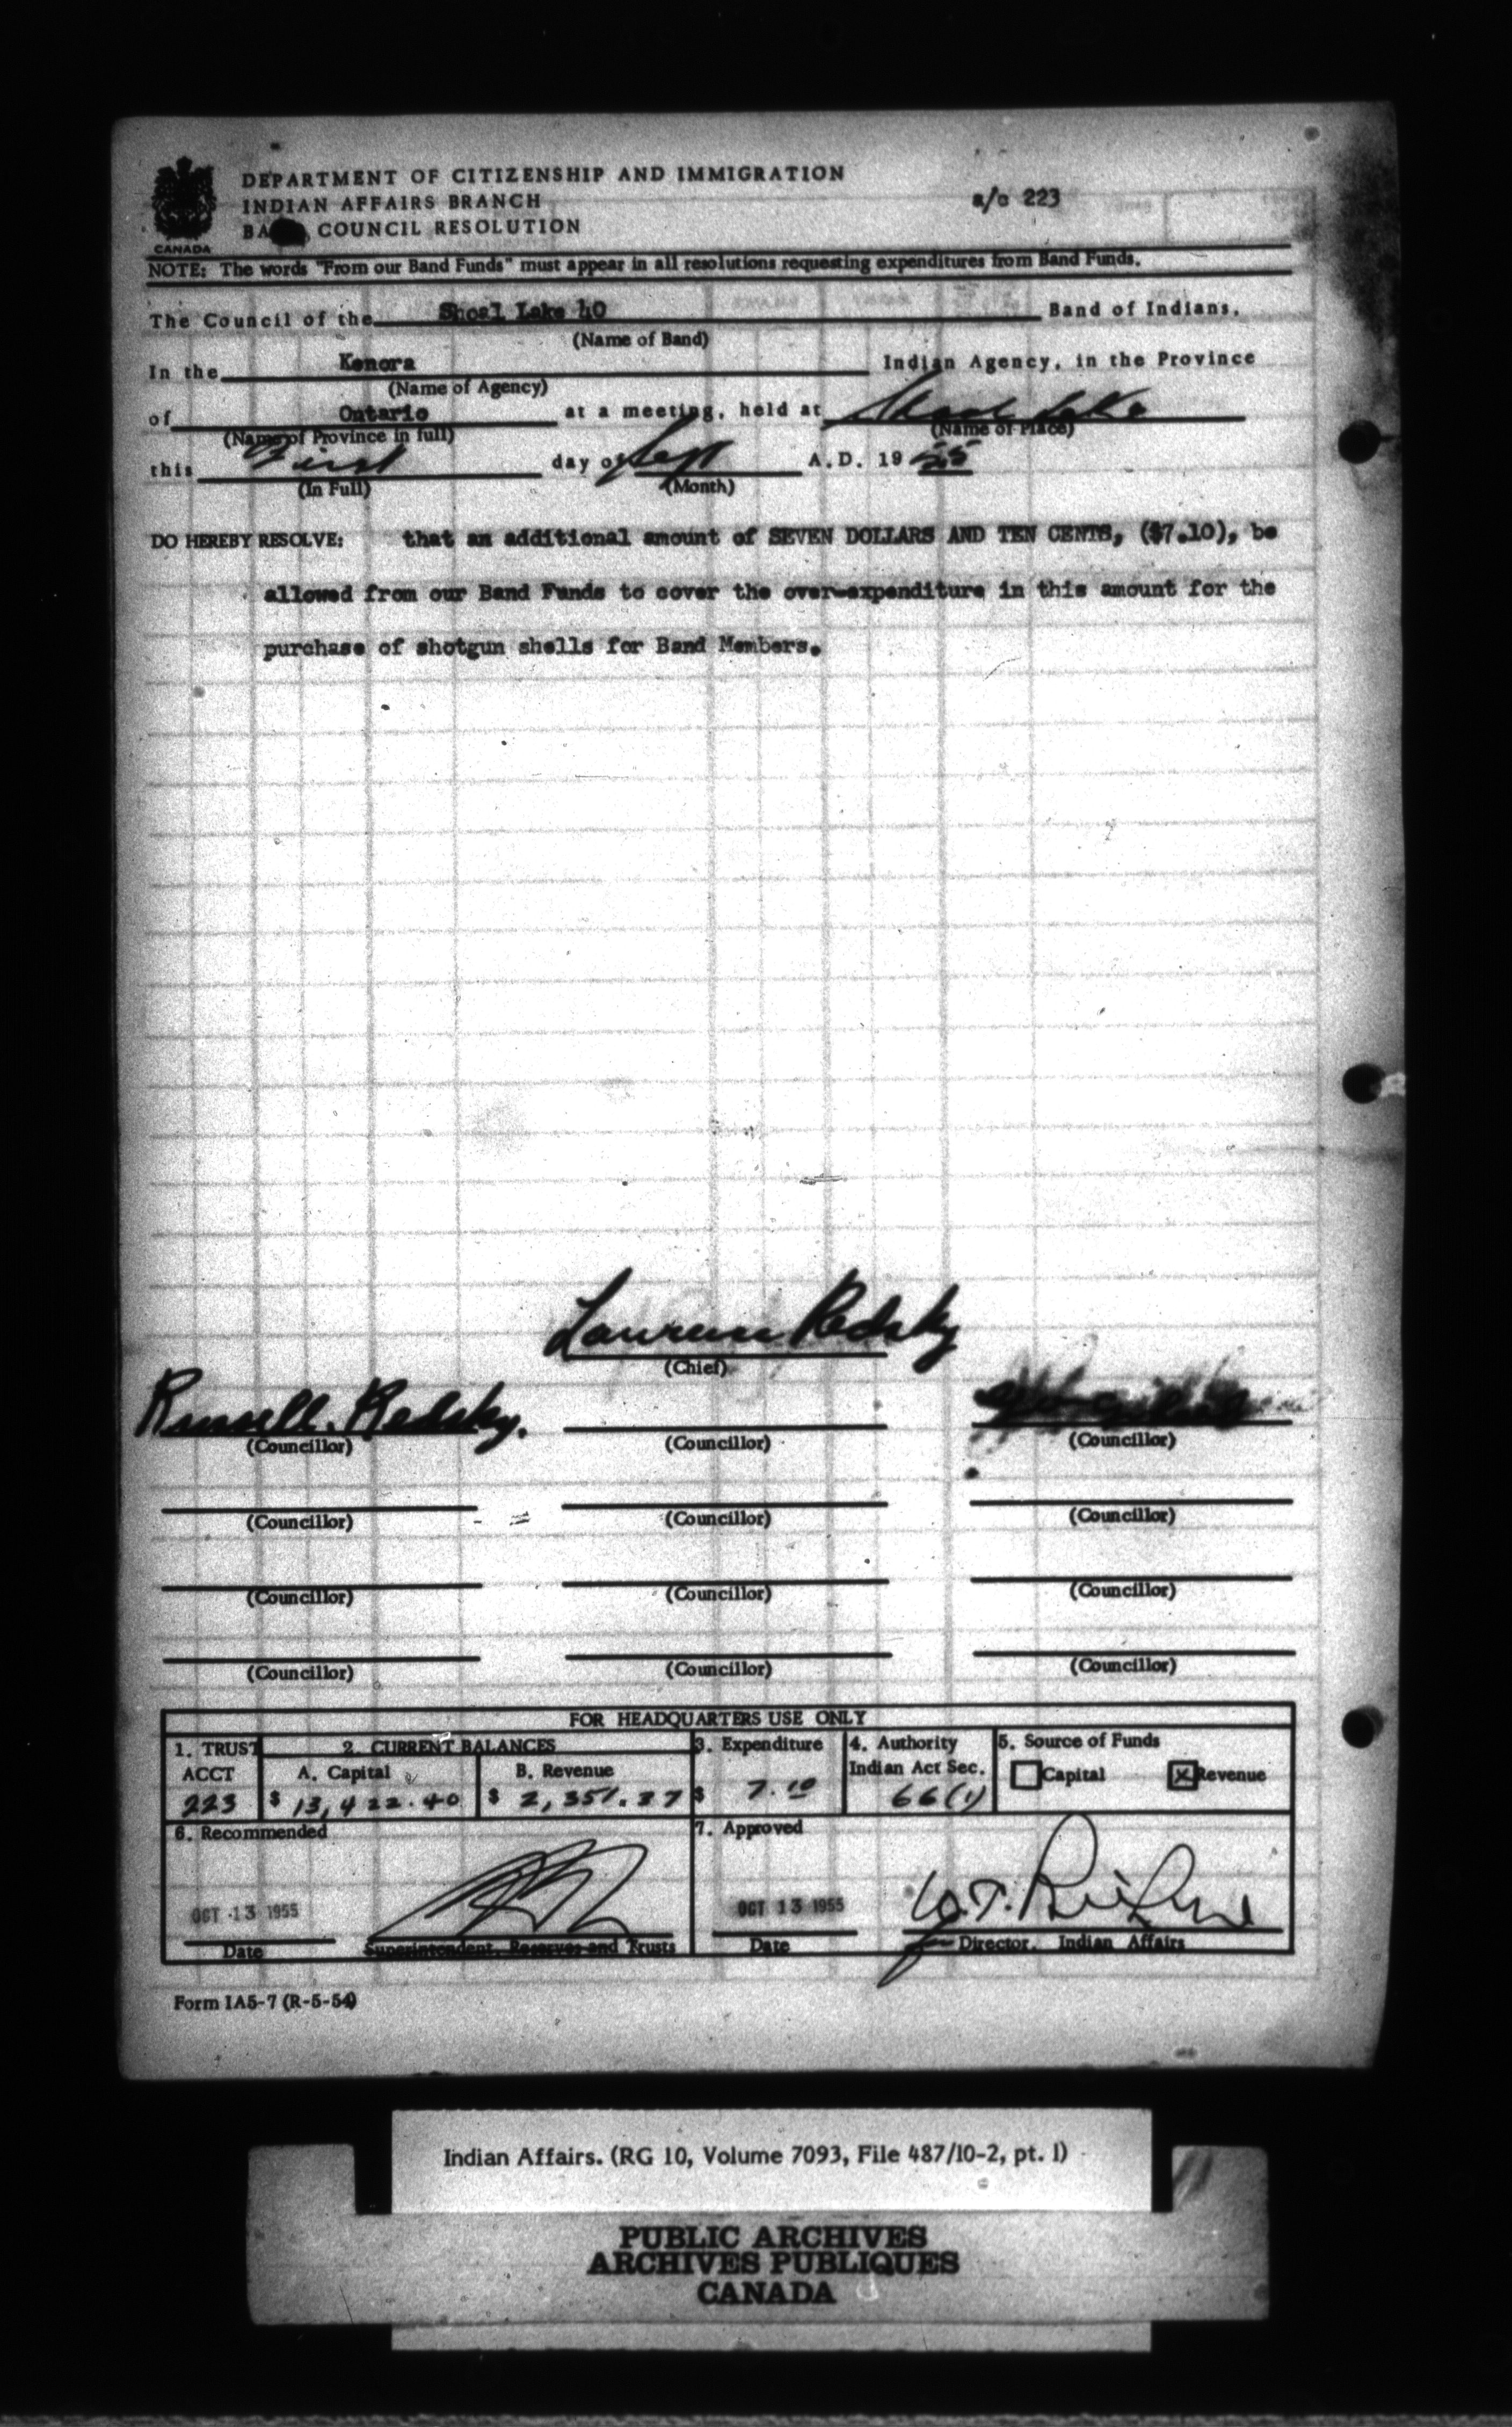 DEPARTMENT OF CITIZENSHIP AND IMMIGRATION
INDIAN AFFAIRS BRANCH
a/c 223
BA COUNCIL RESOLUTION
CANADA
NOTE: The words "From our Band Funds" must appear in all resolutions requesting expenditures from Band Funds.
The Council of the Shoal Lake 40 Band of Indians,
(Name of Band)
In the Kenora Indian Agency, in the Province
(Name of Agency)
of Ontario at a meeting, held at Shoal Lake
(Name of Province in full) (Name of Place)
this First day of Sept A.D. 19 55
(In Full) (Month)
DO HEREBY RESOLVE: that an additional amount of SEVEN DOLLARS AND TEN CENTS, ($7.10), be
allowed from our Band Funds to cover the over-expenditure in this amount for the
purchase of shotgun shells for Band Members.
Lawrence Redsky
(Chief)
Russell. Redsky.
(Councillor) (Councillor) (Councillor)
(Councillor) (Councillor) (Councillor)
(Councillor) (Councillor) (Councillor)
(Councillor) (Councillor) (Councillor)
FOR HEADQUARTERS USE ONLY
1. TRUST ACCT 2. CURRENT BALANCES 3. Expenditure 4. Authority Indian Act Sec. 5. Source of Funds
A. Capital B. Revenue Capital x Revenue
223 $ 13,422.40 $ 2,351.37 $ 7.10 66(1)
6. Recommended 7. Approved
OCT 13 1955 OCT 13 1955
Date Superintendent, Reserves and Trusts Date for Director, Indian Affairs
Form IA5-7 (R-5-54)
Indian Affairs. (RG 10, Volume 7093, File 487/10-2, pt. 1)
PUBLIC ARCHIVES
ARCHIVES PUBLIQUES
CANADA